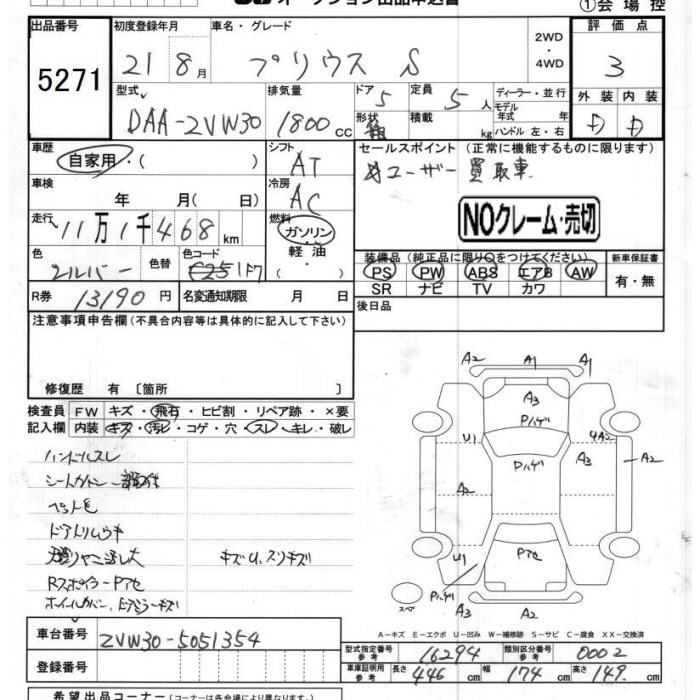 ①会場控
出品番号
初度登録年月
車名・グレード
評価点
5271
21 8月
プリウス S
2WD
・
4WD
3
型式
排気量
ドア
定員
ディーラー・並行
モデル
年式 年
ハンドル 左・右
外装
内装
DAA-ZVW30
1800cc
5
5人
形状
積載
kg
D
D
車歴
自家用・( )
シフト
AT
セールスポイント (正常に機能するものに限ります)
ユーザー買取車
車検
年 月( 日)
冷房
AC
NOクレーム・売切
走行
11万1千468km
燃料
ガソリン・
軽油
・( )
色
シルバー
色替
色コード
1F7
装備品(純正品に限り○をつけてください)
新車保証書
PS PW ABS エアB AW
SR ナビ TV カワ
有・無
R券
13190円
名変通知期限 月 日
後日品
注意事項申告欄(不具合内容等は具体的に記入して下さい)
修復歴 有〔箇所 〕
検査員
記入欄
FW キズ・飛石・ヒビ割・リペア跡・×要
内装 キズ・汚レ・コゲ・穴・スレ・キレ・破レ
ハンドルスレ
シートカバー
ペット毛
ドアトリムウキ
キズU、スリキズ
Rスポイラー P下セ
ホイールカバー、
A2 A1 A1
A3
Pハゲ
U1 UA2
Pハゲ A3 A2
A2
U1 P下セ
Pハゲ
スペア
A3 A2
A-キズ E-エクボ U-凹み W-補修跡 S-サビ C-腐食 XX-交換済
車台番号
ZVW30-5051354
型式指定番号
参考
16294
類別区分番号
参考
0002
登録番号
車庫証明用
参考
長さ
446cm
幅
174cm
高さ
149cm
希望出品コーナー(コーナーは各会場